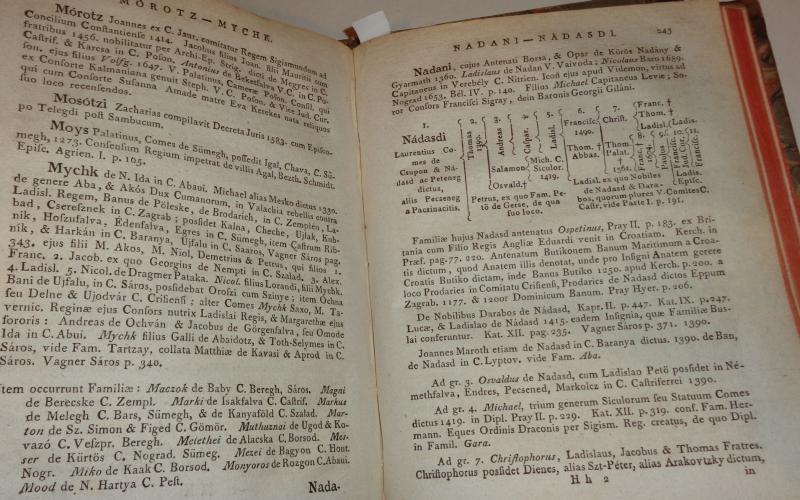 MÓROTZ — MYCHK.
Mórotz Joannes ex C. Jaur. comitatur Regem Sigismundum ad
Concilium Constantiense 1414. Jacobus filius Joan. filii Mauritii cum
fratribus 1456. nobilitatur per Archi-Ep. Strig. dicti de Megyres in C.
Castrif. & Karcsa in C. Poson. Antonius de V. C. in C. Po-
son, ejus filius Volfg. 1647. V. Palatinus, Cameræ Poson. Consil. qui
ex Consorte Kalmaniana genuit Steph. V. C. Poson. & Vice Jud. Cur.
qui cum Consorte Susanna Amade matre Eva Kerekes nata reliquos
suo loco recensendos.
Mosótzi Zacharias compilavit Decreta Juris 1583. cum Episco-
po Telegdi post Sambucum.
Moys Palatinus, Comes de Sümegh, possedit Igal, Chava, C. Sü-
megh, 1273. Consensum Regium impetrat de villis Agal, Bezth. Schmidt.
Episc. Agrien. I. p. 165.
Mychk de N. Ida in C. Abaui. Michael alias Mesko dictus 1330.
de genere Aba, & Akós Dux Cumanorum, in Valachia rebellis contra
Ladisl. Regem, Banus de Póleske, de Brodarich, in C. Zemplén, La-
bad, Cserefznek in C. Zagrab; possidet Kalna, Cheche, Ujlak, Kub-
nik, Hofzufalva, Édenfalva, Egres in C. Sümegh, item Castrum Rib-
nik, & Harkán in C. Baranya, Ujfalu in C. Saaros, Vagner Sáros pag.
343. ejus filii M. Akos, M. Niol, Demetrius & Petrus, qui filios 1.
Franc. 2. Jacob. ex quo Georgius de Nempti in C. Szalad. 3. Alex.
4. Ladisl. 5. Nicol. de Dragmer Pataka. Nicol. filius Lorandi, filii Mychk.
Bani de Ujfalu, in C. Sáros, possidebat Orosfci cum Szinye; item Ochna
seu Delne & Ujodvár C. Crisiensi; alter Comes Mychk Saxo, M. Ta-
vernic. Reginæ ejus Consors nutrix Ladislai Regis, & Margarethæ ejus
sororis: Andreas de Ochván & Jacobus de Görgenfalva, seu Omode
Ida in C. Abui. Mychk filius Galli de Abaidotz, & Toth-Selymes in C.
Sáros, vide Fam. Tartzay, collata Matthiæ de Kavasi & Aprod in C.
Sáros. Vagner Sáros p. 340.
Item occurrunt Familiæ: Maczok de Baby C. Beregh, Sáros. Magni
de Berecske C. Zempl. Marki de Isakfalva C. Castrif. Markus
de Melegh C. Bars, Sümegh, & de Kanyaföld C. Szalad. Mar-
ton de Sz. Simon & Figed C. Gömör. Muthuznai de Ugod & Ko-
vazó C. Veszpr. Beregh. Meiethei de Alacska C. Borsod. Mes-
ser de Kürtös C. Nograd. Sümeg. Mezei de Bagyon C. Hont.
Nogr. Miko de Kaak C. Borsod. Monyoros de Rozgon C. Abaui.
Mood de N. Hartya C. Pest.
Nada-
NADANI — NÁDASDI. 243
Nadani, cujus Antenati Borsa, & Opar de Körös Nadány &
Gyarmath 1360. Ladislaus de Nadan V. Vaivoda; Nicolaus Baro 1639.
Capitaneus in Verebély C. Nitrien. Icon ejus apud Videmon, virtus ad
Nograd 1653. Bél. IV. p. 140. Filius Michael Capitaneus Levæ; So-
ror Consors Francisci Sigray, dein Baronis Georgii Giláni.
1.
Nádasdi
Laurentius Co-
mes de
Csupon & Ná-
dasd ac Peteneg
dictus,
aliis Pecseneg
a Pacsinacitis.
2. Thomas 1390.
3. Andreas
4. Caspar.
5. Ladisl.
Salamon
Mich. C.
Siculor.
1419.
Osvald.†
Petrus, ex quo Fam. Pe-
tö de Gerse, de qua
suo loco.
6. Francisc.
1490.
Thom. †
Abbas.
7. Christ.
Thom.
Palat.
1562.
Franc. †
Thom. †
Ladisl.
8. Franc. † 1604.
9. Paulus
10. Franciscus Jud. Cur.
11. Ladisl. Episc.
Ladisl. ex quo Nobiles
de Nadasd & Dara-
bos, quorum plures V. Comites C.
Castr. vide Parte I. p. 191.
Familiæ hujus Nadasd antenatus Ospetinus, Pray II. p. 183. ex Bri-
tania cum Filio Regis Angliæ Eduardi venit in Croatiam. Kerch. in
Præf. pag. 77. 220. Antenatum Butikonem Banum Maritimum a Croa-
tis dictum, quod Anatem illis denotat, unde pro Insigni Anatem gerere
Croatis Butiko dictam, inde Banus Butiko 1250. apud Kerch. p. 200. a
loco Prodaries in Comitatu Crisiensi, Prodarics de Nadasd dictos Eppum
Zagrab. 1177. & 1200 Dominicum Banum. Pray Hyer. p. 206.
De Nobilibus Darabos de Nádasd, Kapr. II. p. 447. Kat. IX. p. 247.
Lucæ, & Ladislao de Nádasd 1415. eadem Insignia, quæ Familiæ Bus-
lai conferuntur. Kat. XII. pag. 235. Vagner Sáros p. 371. 1390.
Joannes Maroth etiam de Nadasd in C. Baranya dictus. 1390. de Ban,
de Nadasd in C. Lyptov. vide Fam. Aba.
Ad gr. 3. Osvaldus de Nadasd, cum Ladislao Petö possidet in Né-
methfalva, Endres, Pecsened, Markolcz in C. Castriferrei 1390.
Ad gr. 4. Michael, trium generum Siculorum seu Statuum Comes
dictus 1419. in Dipl. Pray II. p. 229. Kat. XII. p. 319. conf. Fam. Her-
mann. Eques Ordinis Draconis per Sigism. Reg. creatus, de quo Dipl.
in Famil. Gara.
Ad gr. 7. Christophorus, Ladislaus, Jacobus & Thomas Fratres.
Christophorus possidet Dienes, alias Szt-Péter, alias Arakovtzky dictum,
H h 2 in